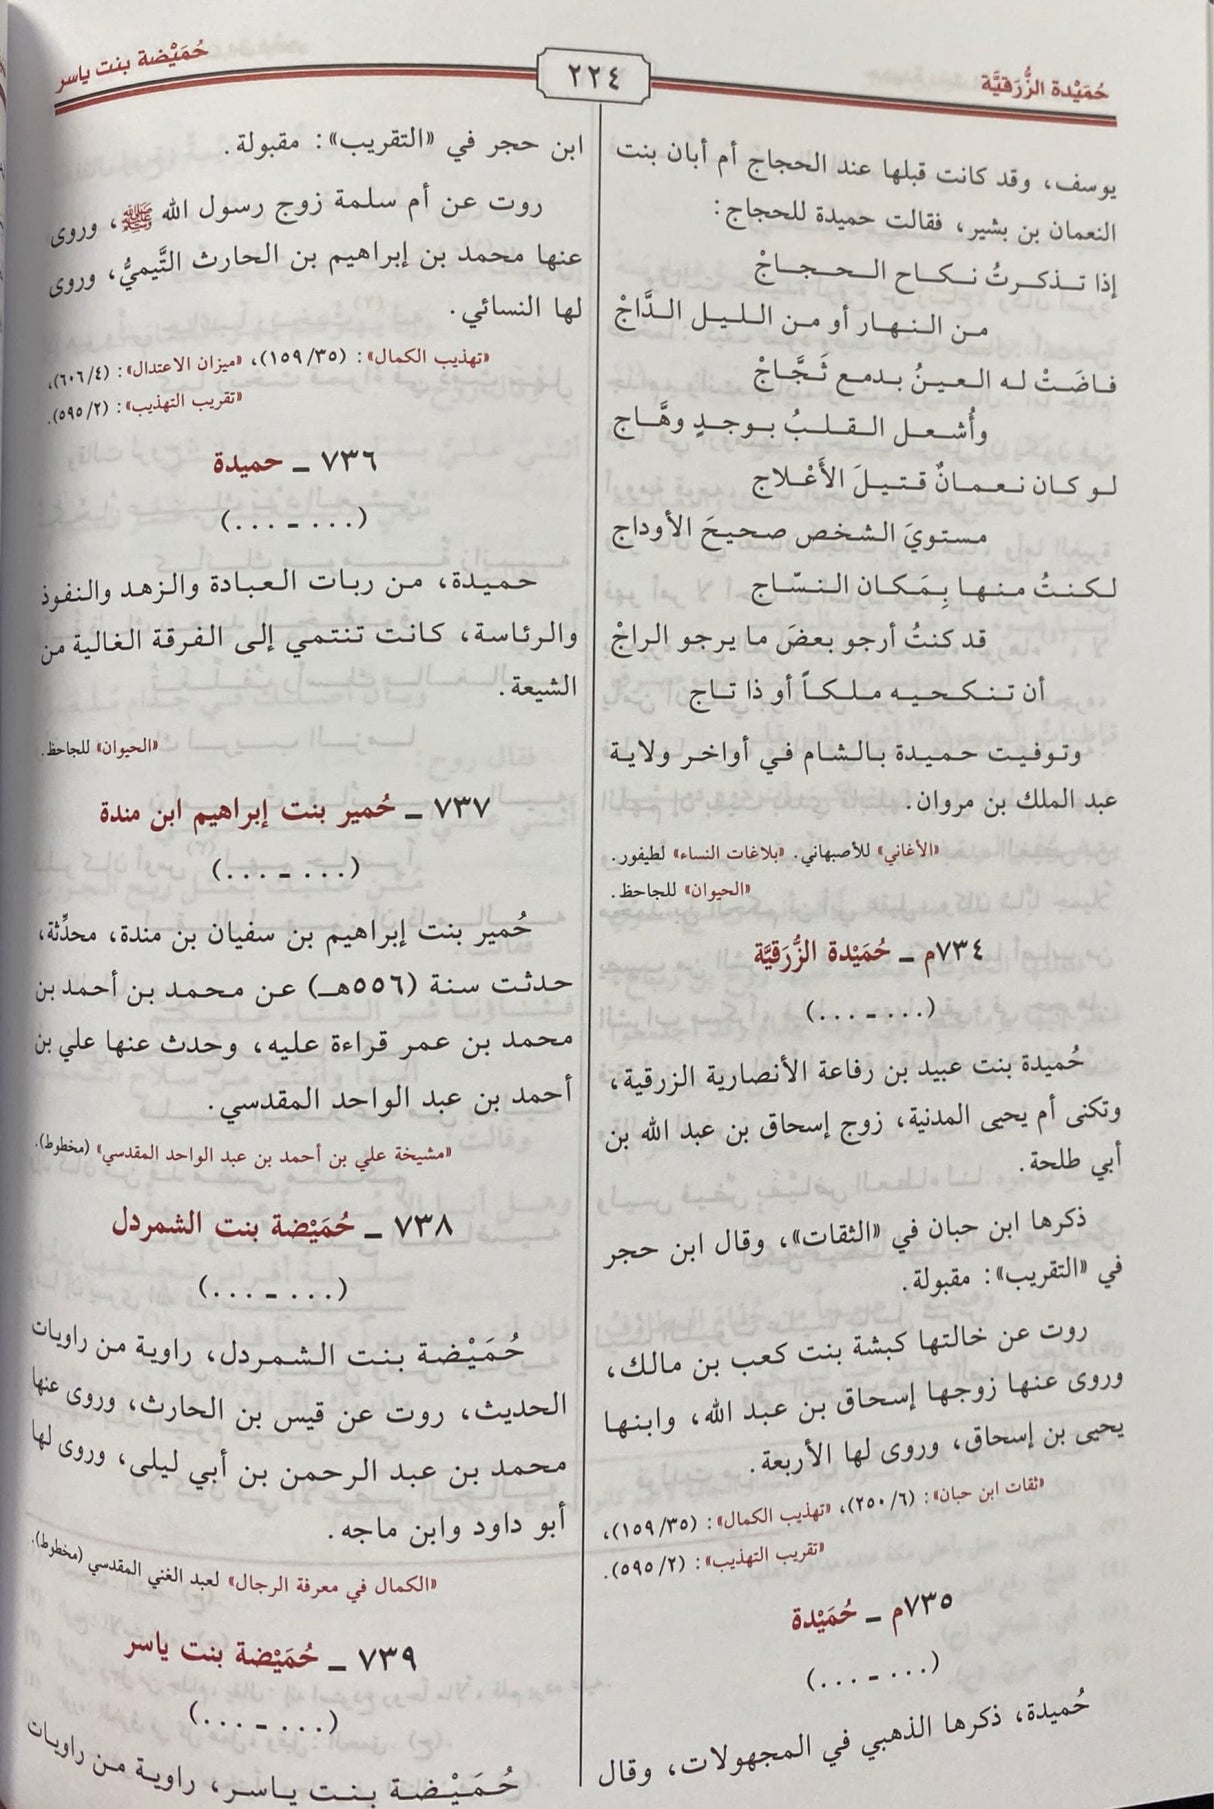 حُمَيْدة الزُّرَقيَّة
٢٢٤
حُمَيْضة بنت ياسر
يوسف، وقد كانت قبلها عند الحجاج أم أبان بنت
النعمان بن بشير، فقالت حميدة للحجاج:
إذا تـذكـرتُ نـكـاح الـحـجـاجْ
مـن الـنـهـار أو مـن الـلـيـل الـدَّاجْ
فـاضَـتْ لـه الـعـيـنُ بـدمـع ثَـجَّـاجْ
وأُشـعـل الـقـلـبُ بـوجـدٍ وهَّـاج
لـو كـان نـعـمـانٌ قـتـيـلَ الأَعْـلاج
مـسـتـويَ الـشـخـص صـحـيـحَ الأوداج
لـكـنـتُ مـنـهـا بِـمَـكـان الـنـسّـاج
قد كنتُ أرجو بعضَ ما يرجو الراجْ
أن تـنـكـحـيـه مـلـكـاً أو ذا تـاج
وتوفيت حميدة بالشام في أواخر ولاية
عبد الملك بن مروان.
«الأغاني» للأصبهاني. «بلاغات النساء» لطيفور.
«الحيوان» للجاحظ.
٧٣٤م ـ حُمَيْدة الزُّرَقيَّة
(... - ...)
حُميدة بنت عبيد بن رفاعة الأنصارية الزرقية،
وتكنى أم يحيى المدنية، زوج إسحاق بن عبد الله بن
أبي طلحة.
ذكرها ابن حبان في «الثقات»، وقال ابن حجر
في «التقريب»: مقبولة.
روت عن خالتها كبشة بنت كعب بن مالك،
وروى عنها زوجها إسحاق بن عبد الله، وابنها
يحيى بن إسحاق، وروى لها الأربعة.
«ثقات ابن حبان»: (٢٥٠/٦)، «تهذيب الكمال»: (١٥٩/٣٥)،
«تقريب التهذيب»: (٥٩٥/٢).
٧٣٥م ـ حُمَيْدة
(... - ...)
حُميدة، ذكرها الذهبي في المجهولات، وقال
ابن حجر في «التقريب»: مقبولة.
روت عن أم سلمة زوج رسول الله ﷺ، وروى
عنها محمد بن إبراهيم بن الحارث التَّيميُّ، وروى
لها النسائي.
«تهذيب الكمال»: (١٥٩/٣٥)، «ميزان الاعتدال»: (٦٠٦/٤)،
«تقريب التهذيب»: (٥٩٥/٢).
٧٣٦ ـ حميدة
(... - ...)
حميدة، من ربات العبادة والزهد والنفوذ
والرئاسة، كانت تنتمي إلى الفرقة الغالية من
الشيعة.
«الحيوان» للجاحظ.
٧٣٧ ـ حُمير بنت إبراهيم ابن مندة
(... - ...)
حُمير بنت إبراهيم بن سفيان بن مندة، محدِّثة،
حدثت سنة (٥٥٦هـ) عن محمد بن أحمد بن
محمد بن عمر قراءة عليه، وحدث عنها علي بن
أحمد بن عبد الواحد المقدسي.
«مشيخة علي بن أحمد بن عبد الواحد المقدسي» (مخطوط).
٧٣٨ ـ حُمَيْضة بنت الشمردل
(... - ...)
حُمَيْضة بنت الشمردل، راوية من راويات
الحديث، روت عن قيس بن الحارث، وروى عنها
محمد بن عبد الرحمن بن أبي ليلى، وروى لها
أبو داود وابن ماجه.
«الكمال في معرفة الرجال» لعبد الغني المقدسي (مخطوط).
٧٣٩ ـ حُمَيْضة بنت ياسر
(... - ...)
حُمَيْضة بنت ياسر، راوية من راويات